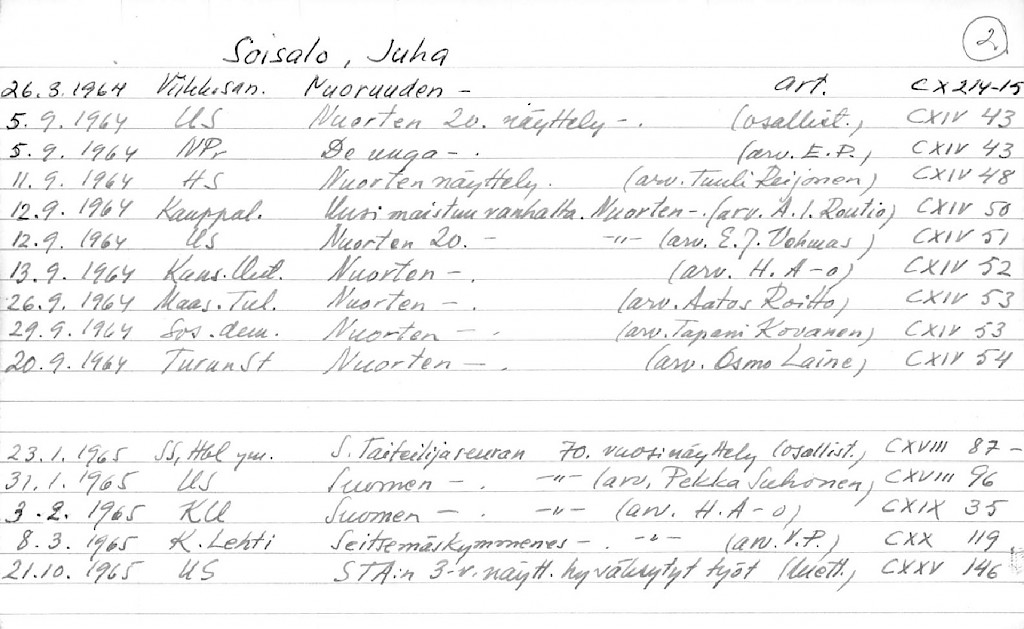 2.
Soisalo, Juha
26.3.1964 Viikkosan. Nuoruuden – art. CX 214-15
5.9.1964 US Nuorten 20. näyttely –. (osallist.) CXIV 43
5.9.1964 NPr De unga – . (arv. E.P.) CXIV 43
11.9.1964 HS Nuorten näyttely. (arv. Tuuli Reijonen) CXIV 48
12.9.1964 Kauppal. Uusi maistuu vanhalta. Nuorten –. (arv. A.I. Routio) CXIV 50
12.9.1964 US Nuorten 20. – -"- (arv. E.J. Vehmas) CXIV 51
13.9.1964 Kans. Uut. Nuorten – . (arv. H. A-o) CXIV 52
26.9.1964 Maas. Tul. Nuorten – . (arv. Aatos Roitto) CXIV 53
29.9.1964 Sos.dem. Nuorten – . (arv. Tapani Kovanen) CXIV 53
20.9.1964 TurunSt Nuorten – . (arv. Osmo Laine) CXIV 54
23.1.1965 SS, Hbl ym. S. Taiteilijaseuran 70. vuosinäyttely (osallist.) CXVIII 87 –
31.1.1965 US Suomen – . -"- (arv. Pekka Suhonen) CXVIII 96
3.2.1965 KU Suomen – . -"- (arv. H. A-o) CXIX 35
8.3.1965 K.Lehti Seitsemäskymmenes – . -"- (arv. V.P.) CXX 119
21.10.1965 US STA:n 3-v. näytt. hyväksytyt työt (luett.) CXXV 146